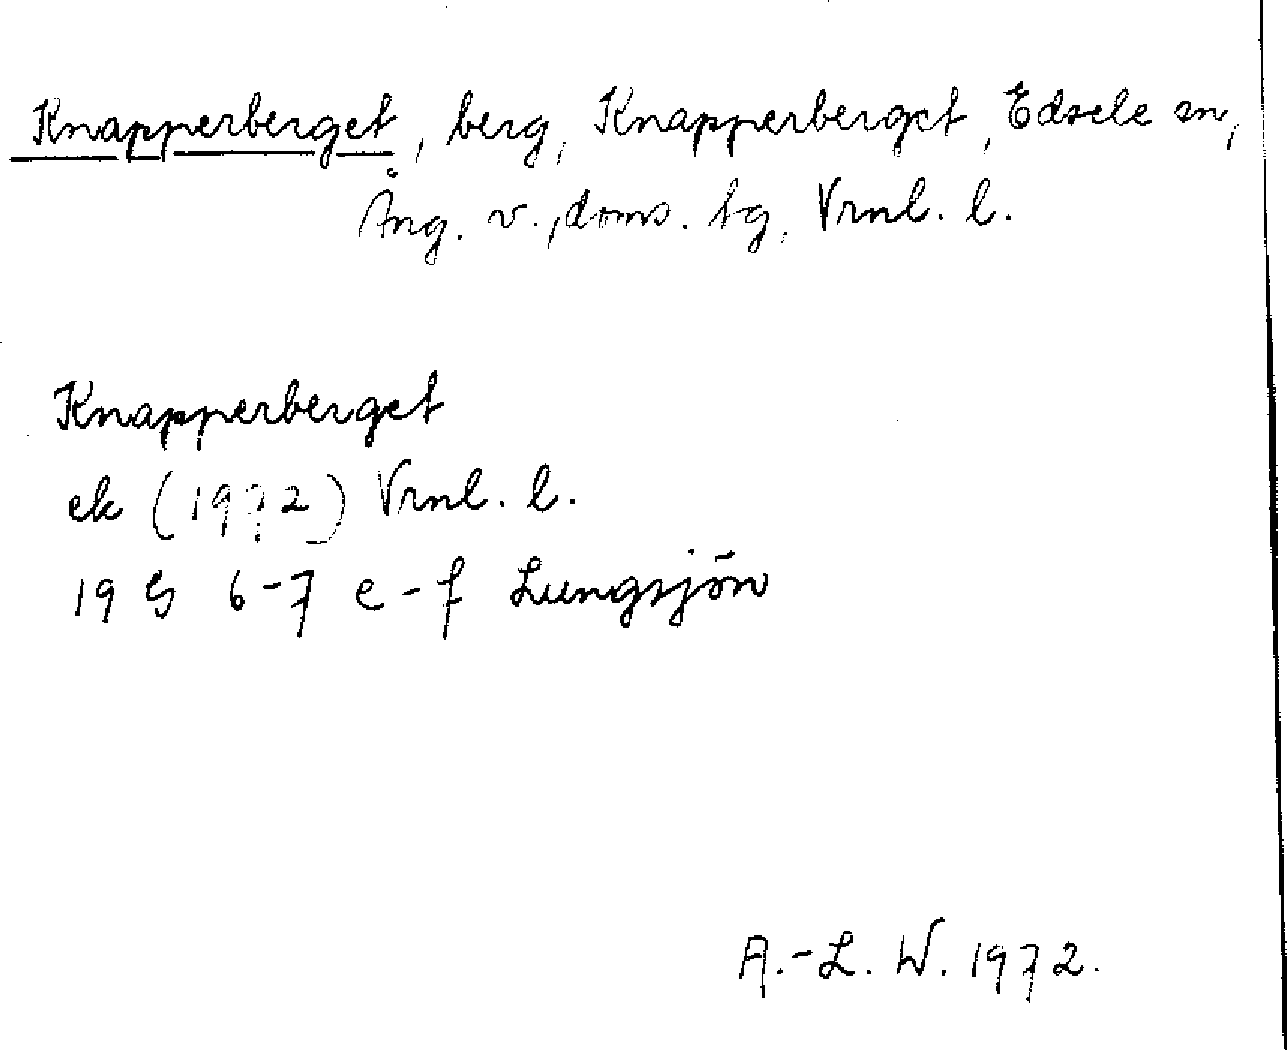 Knapperberget, berg, Knapperberget, Edsele sn,
Ång. v., doms. tg, Vrnl. l.
Knapperberget
ek (1972) Vrnl. l.
19 G 6-7 e-f Lungsjön
A.-L. W. 1972.